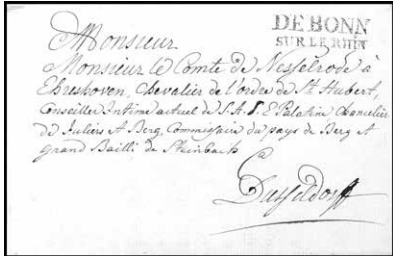 DE BONN
SUR LE RHIN
Monsieur
Monsieur le Comte de Nesselrode à
Ehreshoven, Chevalier de l'ordre de St Hubert,
Conseiller Intime actuel de S. A. S. E. Palatine Chancelier
de Juliers et Berg, Commissaire du pays de Berg et
grand Bailli de Steinbach
Dusseldorff